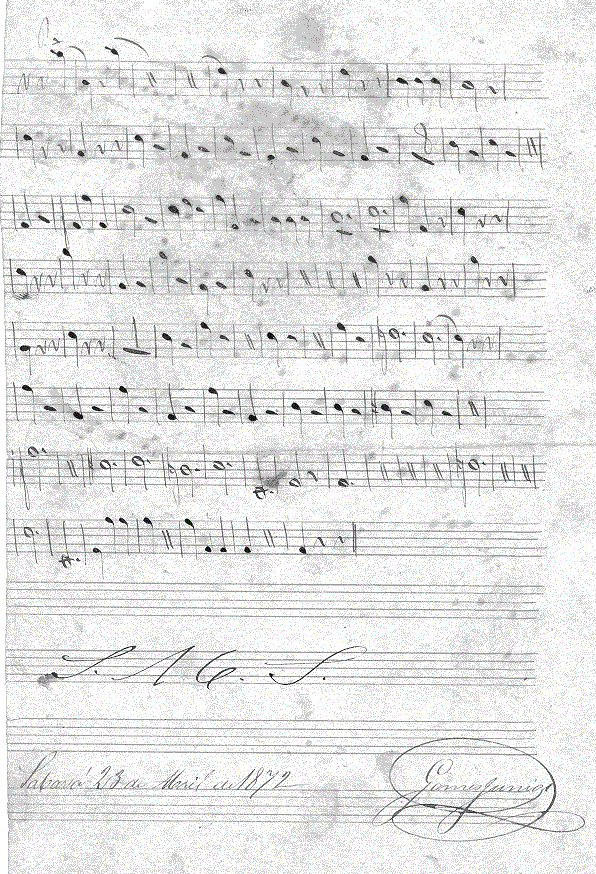 S. A. C. S.
Sabará 23 de Abril de 1872
Gomes Junior